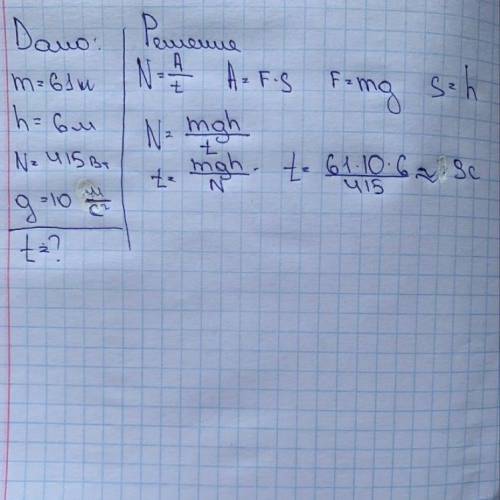 Дано:
m=61кг
h=6м
N=415Вт
g=10 м/с²
t=?
Решение
N=A/t A=F·S F=mg S=h
N=mgh/t
t=mgh/N · t=61·10·6/415≈9с